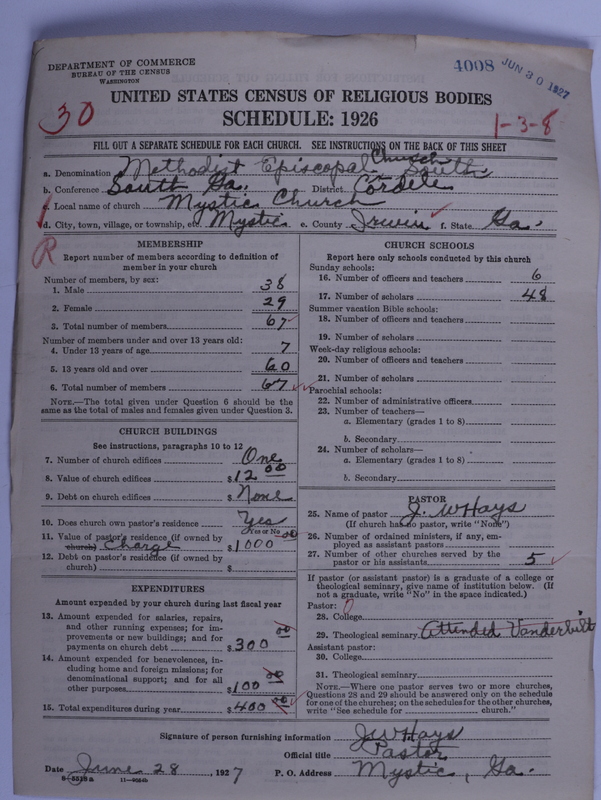 DEPARTMENT OF COMMERCE
BUREAU OF THE CENSUS
WASHINGTON
4008 JUN 30 1927
30
UNITED STATES CENSUS OF RELIGIOUS BODIES
SCHEDULE: 1926
1-3-8
FILL OUT A SEPARATE SCHEDULE FOR EACH CHURCH. SEE INSTRUCTIONS ON THE BACK OF THIS SHEET
a. Denomination Methodist Episcopal Church South.
b. Conference South Ga. District Cordele
c. Local name of church Mystic Church
d. City, town, village, or township, etc. Mystic e. County Irwin f. State Ga.
R
MEMBERSHIP
Report number of members according to definition of
member in your church
Number of members, by sex:
1. Male 38
2. Female 29
3. Total number of members 67
Number of members under and over 13 years old:
4. Under 13 years of age 7
5. 13 years old and over 60
6. Total number of members 67
NOTE.—The total given under Question 6 should be
same as the total of males and females given under Question 3.
CHURCH BUILDINGS
See instructions, paragraphs 10 to 12
7. Number of church edifices One
8. Value of church edifices $ 12 00
9. Debt on church edifices $ None
10. Does church own pastor's residence Yes
Yes or No
11. Value of pastor's residence (if owned by
church) Charge $ 1000 00
12. Debt on pastor's residence (if owned by
church) $
EXPENDITURES
Amount expended by your church during last fiscal year
13. Amount expended for salaries, repairs,
and other running expenses; for im-
provements or new buildings; and for
payments on church debt $ 300 00
14. Amount expended for benevolences, in-
cluding home and foreign missions; for
denominational support; and for all
other purposes $ 100 00
15. Total expenditures during year $ 400 00
CHURCH SCHOOLS
Report here only schools conducted by this church
Sunday schools:
16. Number of officers and teachers 6
17. Number of scholars 48
Summer vacation Bible schools:
18. Number of officers and teachers
19. Number of scholars
Week-day religious schools:
20. Number of officers and teachers
21. Number of scholars
Parochial schools:
22. Number of administrative officers
23. Number of teachers—
a. Elementary (grades 1 to 8)
b. Secondary
24. Number of scholars—
a. Elementary (grades 1 to 8)
b. Secondary
PASTOR
25. Name of pastor J. W Hays
(If church has no pastor, write "None")
26. Number of ordained ministers, if any, em-
ployed as assistant pastors
27. Number of other churches served by the
pastor or his assistants 5
If pastor (or assistant pastor) is a graduate of a college or
theological seminary, give name of institution below. (If
not a graduate, write "No" in the space indicated.)
Pastor:
28. College
29. Theological seminary Attended Vanderbilt
Assistant pastor:
30. College
31. Theological seminary
NOTE.—Where one pastor serves two or more churches,
Questions 28 and 29 should be answered only on the schedule
for one of the churches; on the schedules for the other churches,
write "See schedule for church."
Signature of person furnishing information J W Hays
Official title Pastor
Date June 28, 1927 P. O. Address Mystic, Ga.